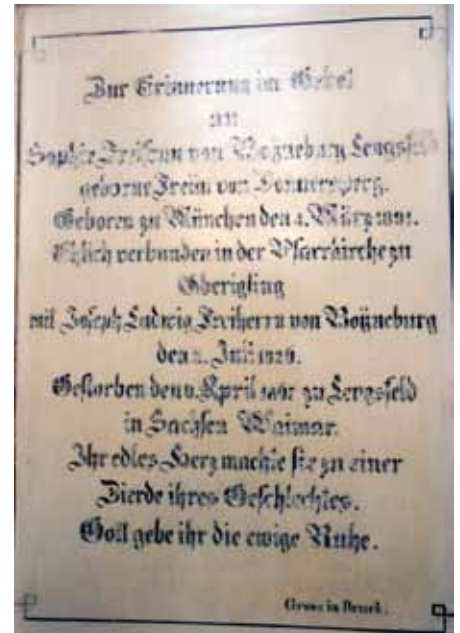 Zur Erinnerung im Gebet
an
Sophie Freifrau von Boÿneburg Lengsfeld
geborne Freiin von Donnersperg.
Geboren zu München den 1. März
Ehlich verbunden in der Pfarrkirche zu
Oberigling
mit Joseph Ludwig Freiherrn von Boÿneburg
den 2. Juli 1826.
Gestorben den April zu Lengsfeld
in Sachsen Waimar.
Ihr edles Herz machte sie zu einer
Zierde ihres Geschlechtes.
Gott gebe ihr die ewige Ruhe.
in Druck.